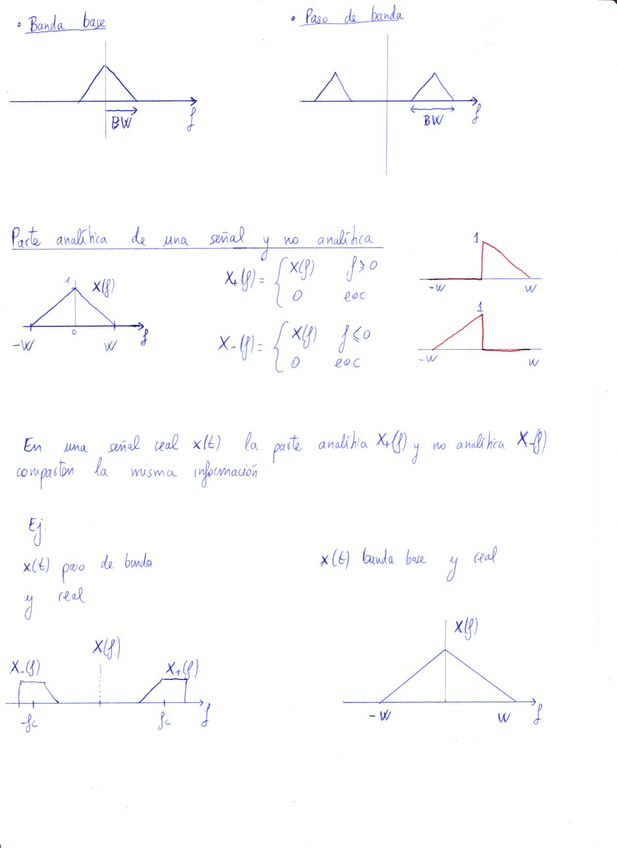 • Banda base
• Paso de banda
BW
f
BW
f
Parte analítica de una señal y no analítica
1
X(f)
-W
0
W
f
X₊(f) = { X(f) f ≥ 0
0 eoc
X₋(f) = { X(f) f ≤ 0
0 eoc
1
-W
W
1
-W
W
En una señal real x(t) la parte analítica X₊(f) y no analítica X₋(f)
comparten la misma información
Ej.
x(t) paso de banda
y real
x(t) banda base y real
X₋(f)
X(f)
X₊(f)
-fc
fc
f
X(f)
-W
W
f